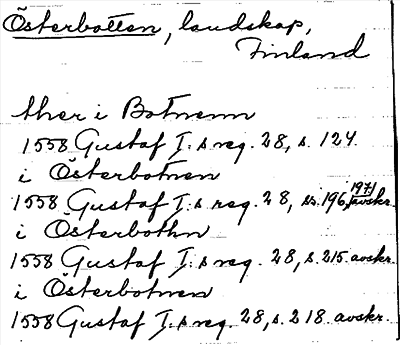 Österbotten, landskap,
Finland
ther i Botnenn
1558 Gustaf I:s reg. 28, s. 124.
i Österbotnen
1558 Gustaf I:s reg. 28, ss. 196, 197/ avskr.
i Österbothn
1558 Gustaf I:s reg. 28, s. 215. avskr.
i Österbotnen
1558 Gustaf I:s reg. 28, s. 218. avskr.